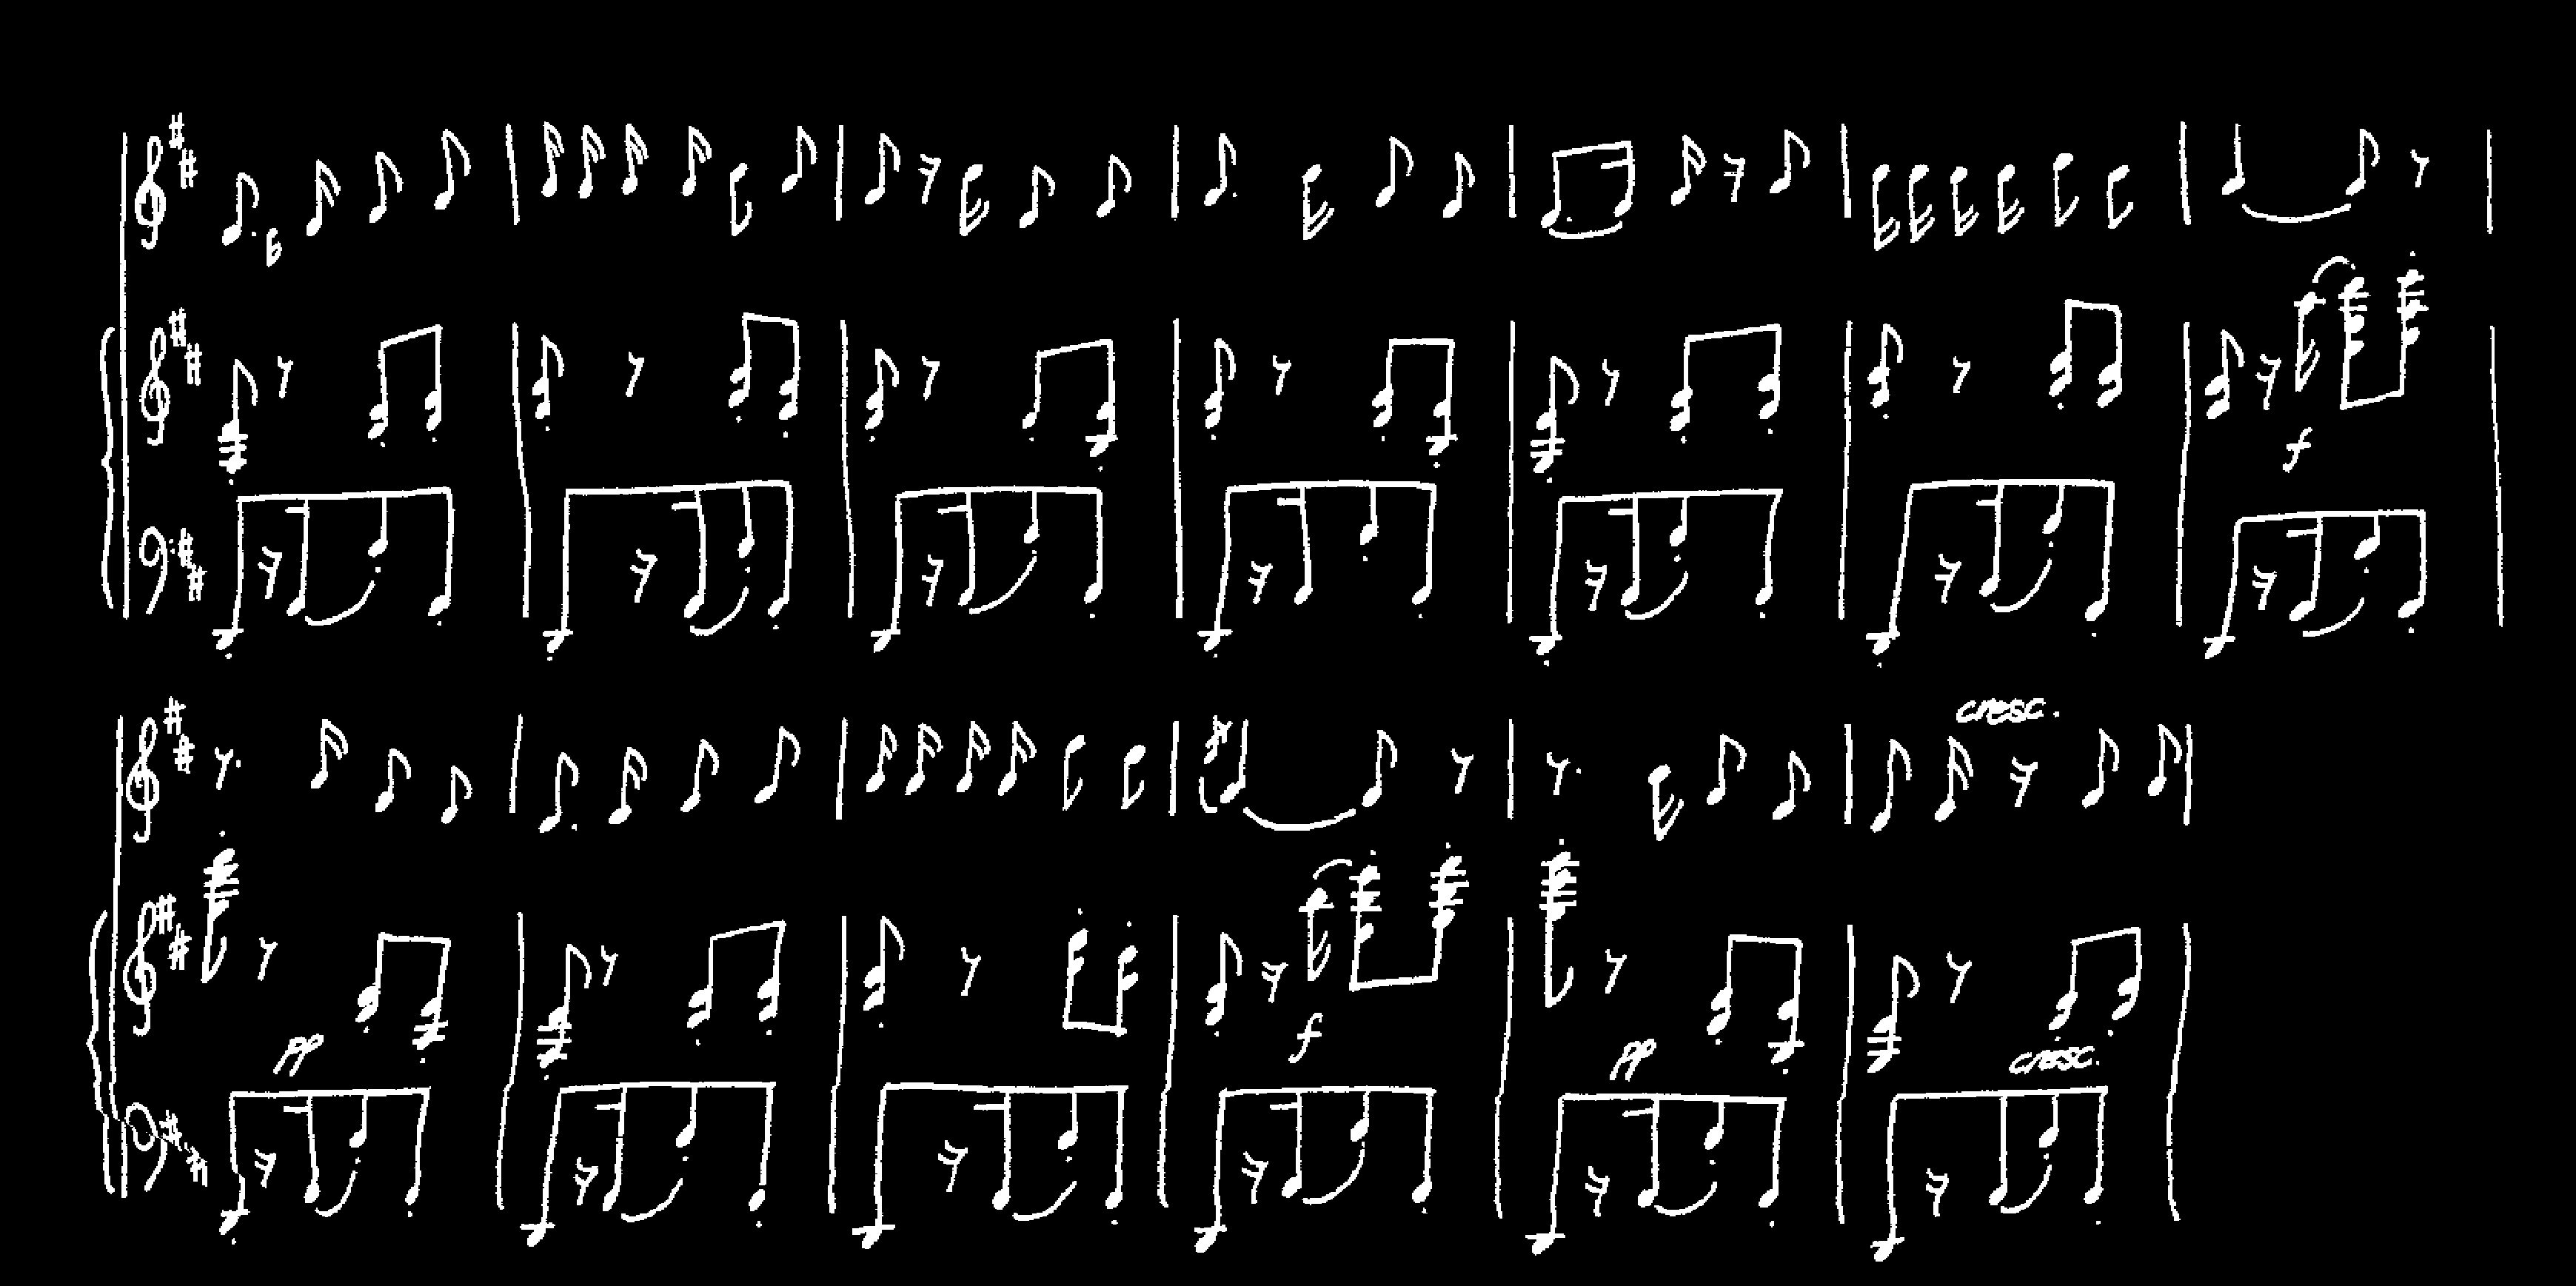 f
cresc.
pp f pp cresc.